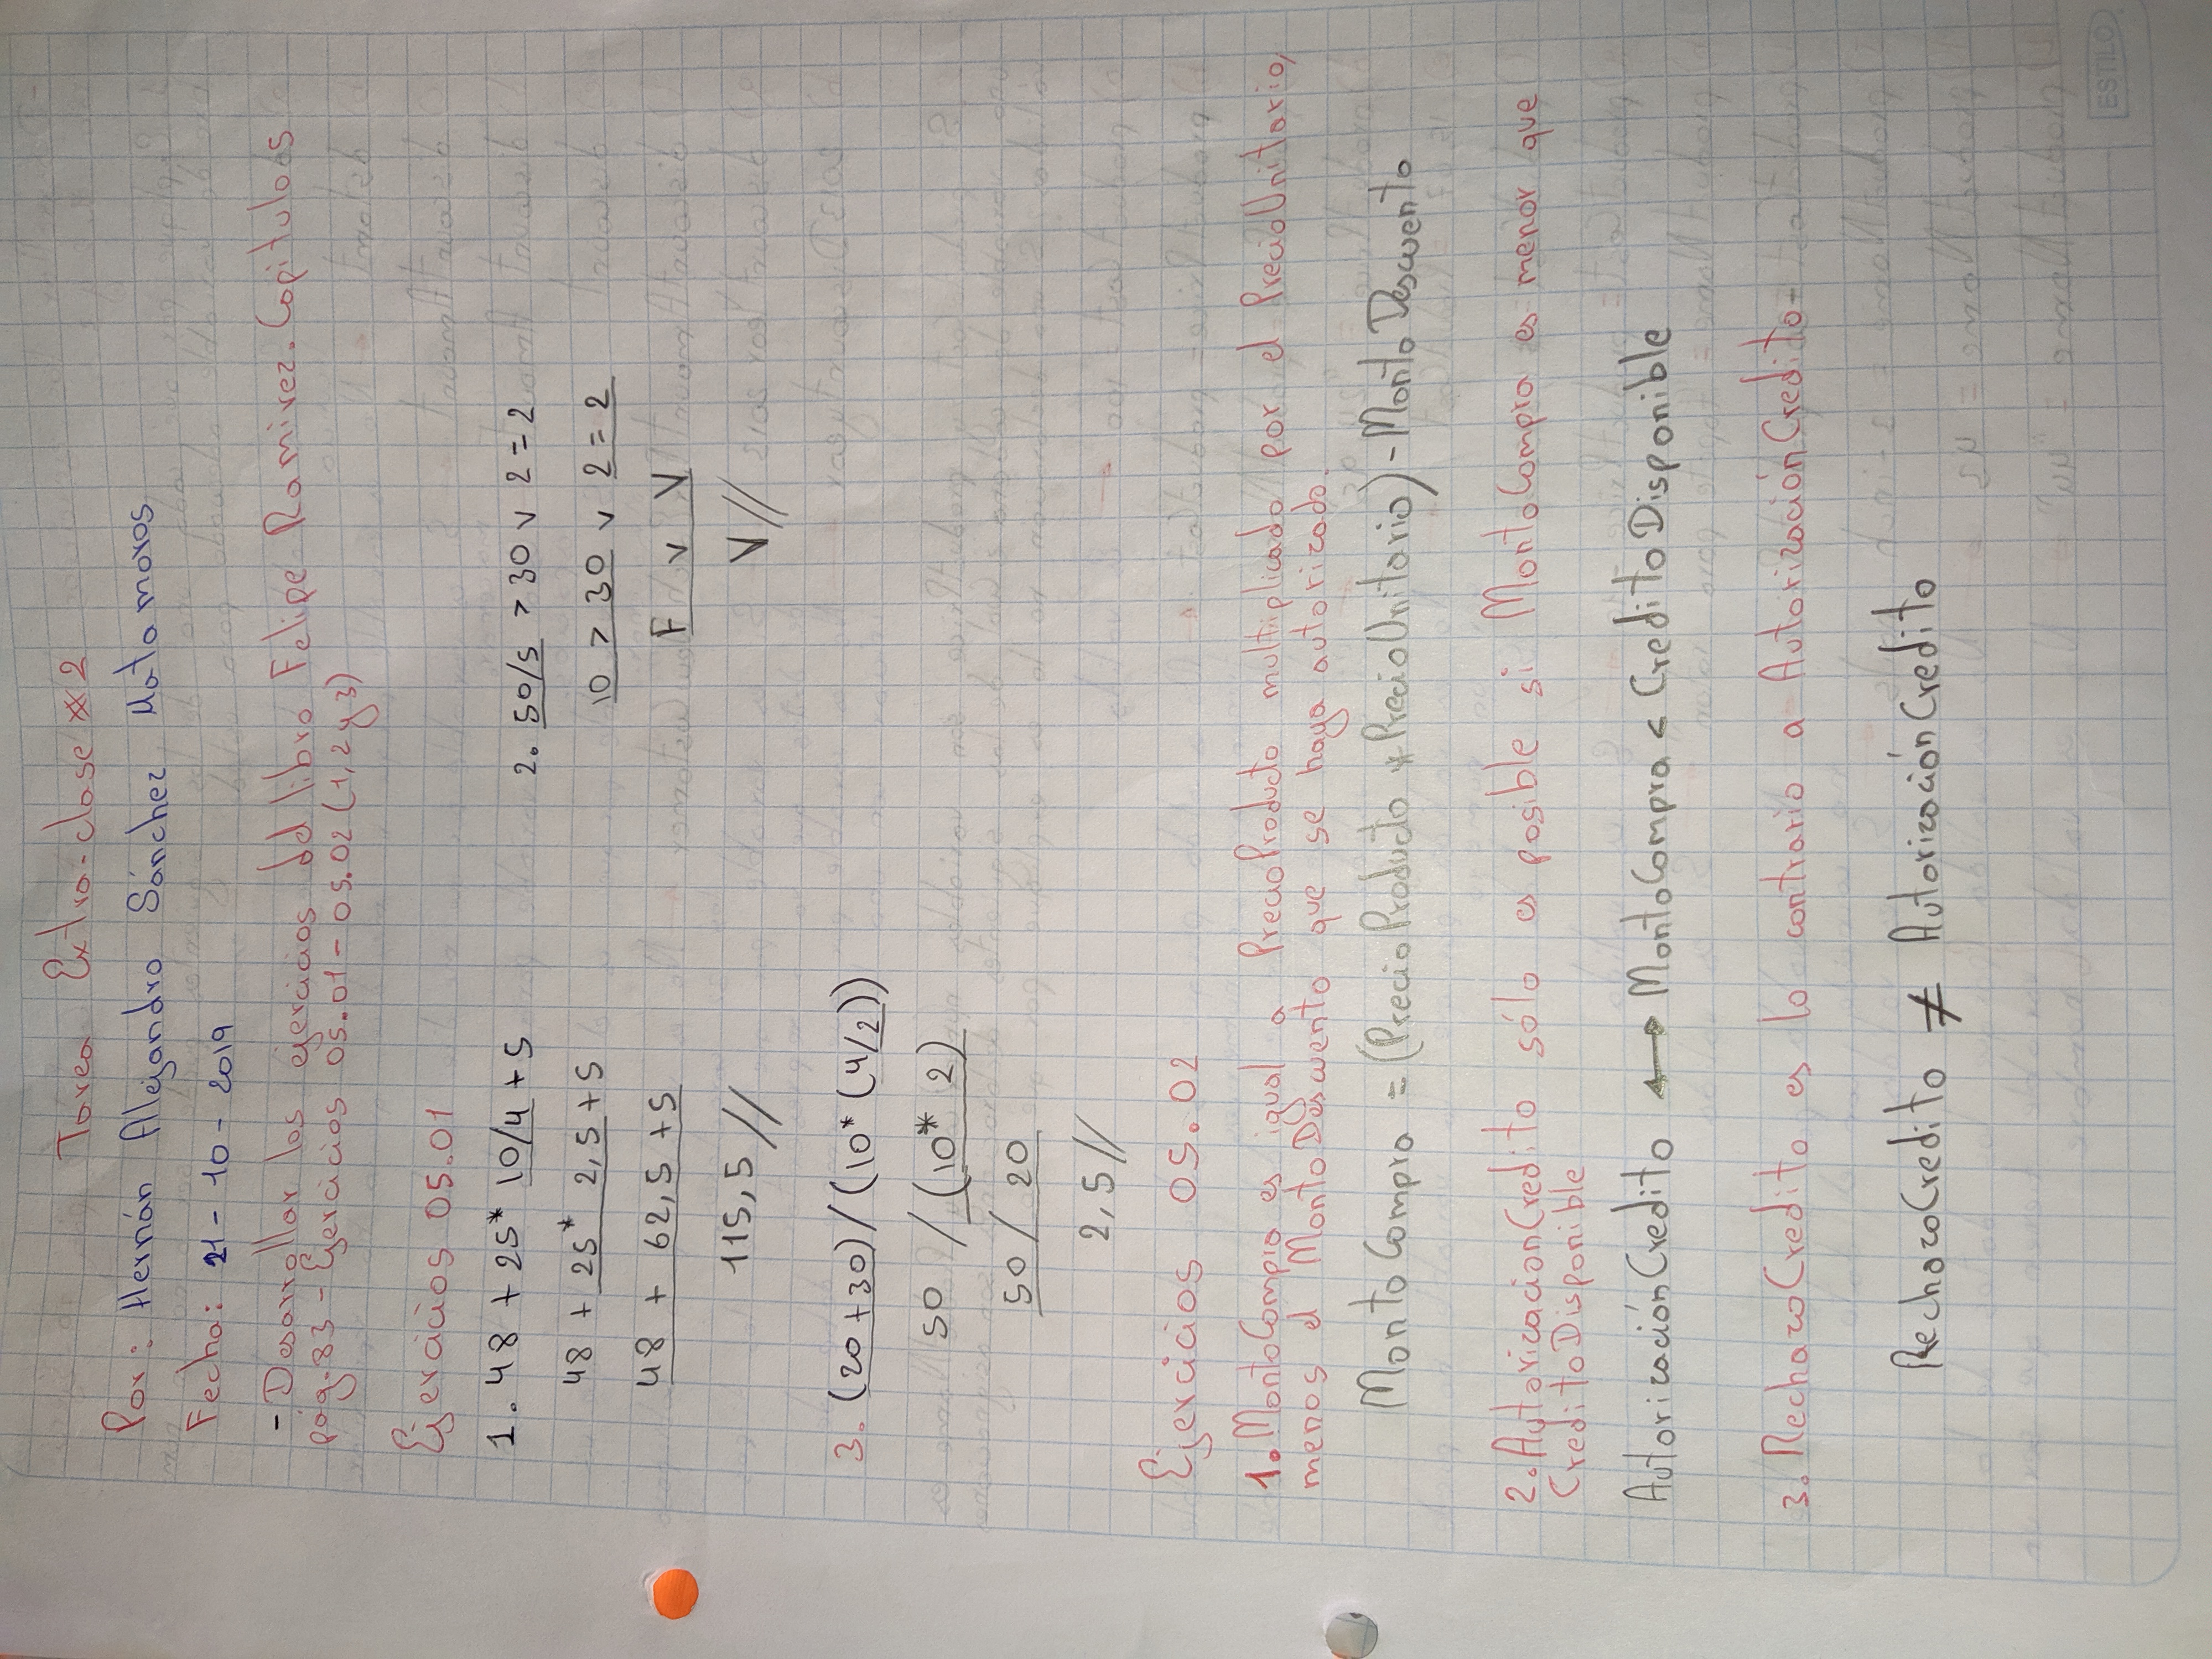 Tarea Extra-clase #2
Por: Hernán Alejandro Sánchez Matamoros
Fecha: 21-10-2019
- Desarrollar los ejercicios del libro Felipe Ramirez. Capitulo 5
pág. 83 - Ejercicios 05.01 - 05.02 (1, 2 y 3)
Ejercicios 05.01
1. 48 + 25* 10/4 + 5
48 + 25* 2,5 + 5
48 + 62,5 + 5
115,5 //
2. 50/5 > 30 v 2 = 2
10 > 30 v 2 = 2
F v V
V//
3. (20 + 30) / (10* (4/2))
50 / (10* 2)
50 / 20
2,5//
Ejercicios 05.02
1. MontoCompra es igual a PrecioProducto multiplicado por el PrecioUnitario,
menos el MontoDescuento que se haya autorizado.
MontoCompra = (PrecioProducto * PrecioUnitario) - MontoDescuento
2. AutorizacionCredito sólo es posible si MontoCompra es menor que
CreditoDisponible
AutorizaciónCredito ↔ MontoCompra < CreditoDisponible
3. RechazoCredito es lo contrario a AutorizaciónCredito-
RechazoCredito ≠ AutorizaciónCredito
ESTILO